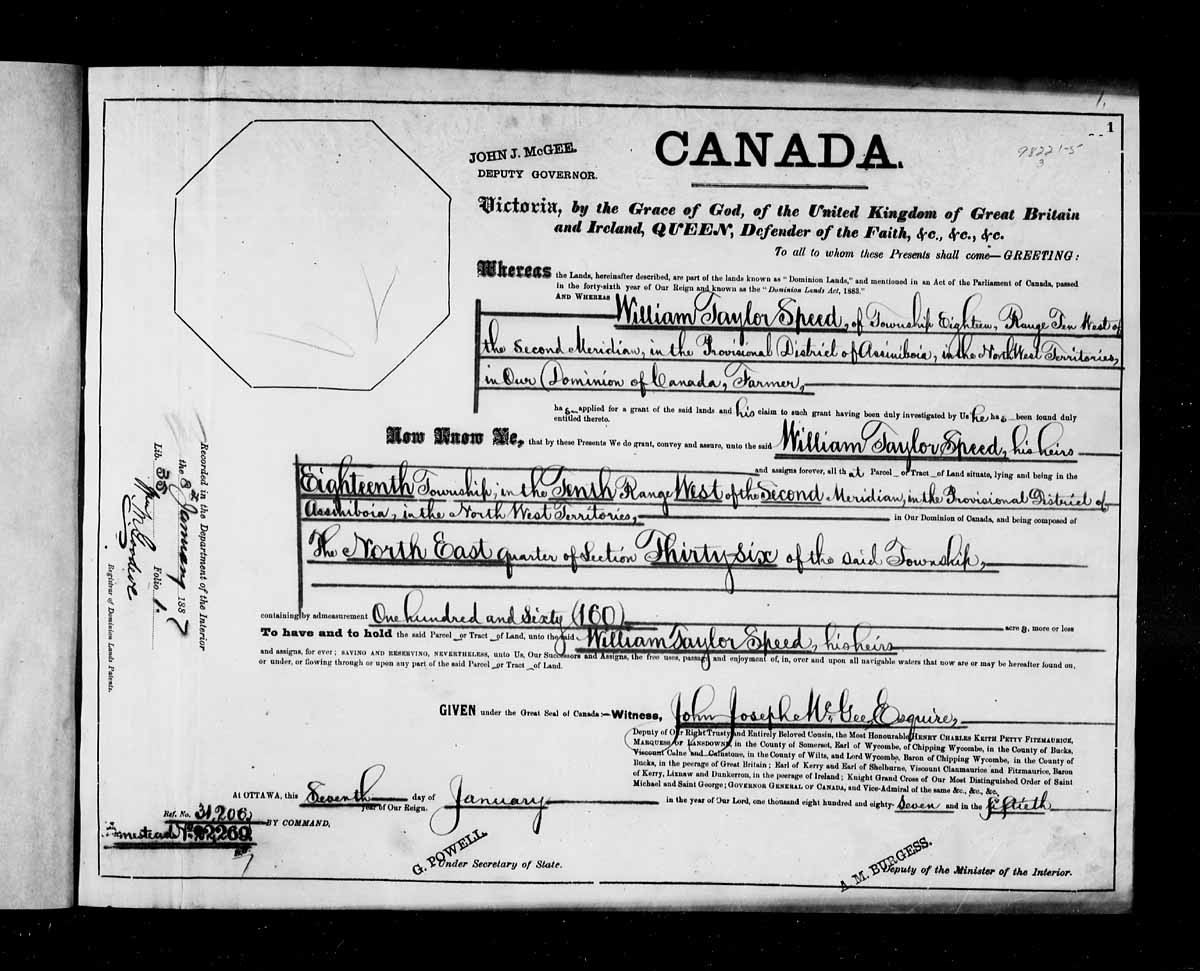 1.
1
98221-5
3
JOHN J. McGEE.
DEPUTY GOVERNOR.
CANADA.
Victoria, by the Grace of God, of the United Kingdom of Great Britain
and Ireland, QUEEN, Defender of the Faith, &c., &c., &c.
To all to whom these Presents shall come—GREETING:
Whereas the Lands, hereinafter described, are part of the lands known as "Dominion Lands," and mentioned in an Act of the Parliament of Canada, passed
in the forty-sixth year of Our Reign and known as the "Dominion Lands Act, 1883."
AND WHEREAS William Taylor Speed, of Township Eighteen, Range Ten West of
the Second Meridian, in the Provisional District of Assiniboia, in the North West Territories,
in Our Dominion of Canada, Farmer,
has applied for a grant of the said lands and his claim to such grant having been duly investigated by Us he has been found duly
entitled thereto.
Now Know Ye, that by these Presents We do grant, convey and assure, unto the said William Taylor Speed, his heirs
and assigns forever, all that Parcel or Tract of Land situate, lying and being in the
Eighteenth Township, in the Tenth Range West of the Second Meridian, in the Provisional District of
Assiniboia, in the North West Territories, in Our Dominion of Canada, and being composed of
The North East quarter of Section Thirty six of the said Township,
containing by admeasurement One hundred and Sixty (160) acres, more or less
To have and to hold the said Parcel or Tract of Land, unto the said William Taylor Speed, his heirs
and assigns, for ever; SAVING AND RESERVING, NEVERTHELESS, unto Us, Our Successors and Assigns, the free uses, passage and enjoyment of, in, over and upon all navigable waters that now are or may be hereafter found on,
or under, or flowing through or upon any part of the said Parcel or Tract of Land.
GIVEN under the Great Seal of Canada:—Witness, John Joseph McGee, Esquire,
Deputy of Our Right Trusty and Entirely Beloved Cousin, the Most Honourable HENRY CHARLES KEITH PETTY FITZMAURICE,
MARQUESS OF LANSDOWNE, in the County of Somerset, Earl of Wycombe, of Chipping Wycombe, in the County of Bucks,
Viscount Calne and Calnstone, in the County of Wilts, and Lord Wycombe, Baron of Chipping Wycombe, in the County of
Bucks, in the peerage of Great Britain; Earl of Kerry and Earl of Shelburne, Viscount Clanmaurice and Fitzmaurice, Baron
of Kerry, Lixnaw and Dunkerron, in the peerage of Ireland; Knight Grand Cross of Our Most Distinguished Order of Saint
Michael and Saint George; GOVERNOR GENERAL OF CANADA, and Vice-Admiral of the same &c., &c., &c.
At OTTAWA, this Seventh day of January in the year of Our Lord, one thousand eight hundred and eighty-seven and in the fiftieth
year of Our Reign.
Ref. No. 31,206
BY COMMAND,
Homestead No. 22269
G. POWELL.
Under Secretary of State.
A. M. BURGESS.
Deputy of the Minister of the Interior.
Recorded in the Department of the Interior
the 8th January 1887
Lib. 35 Folio 1.
Registrar of Dominion Lands Patents.